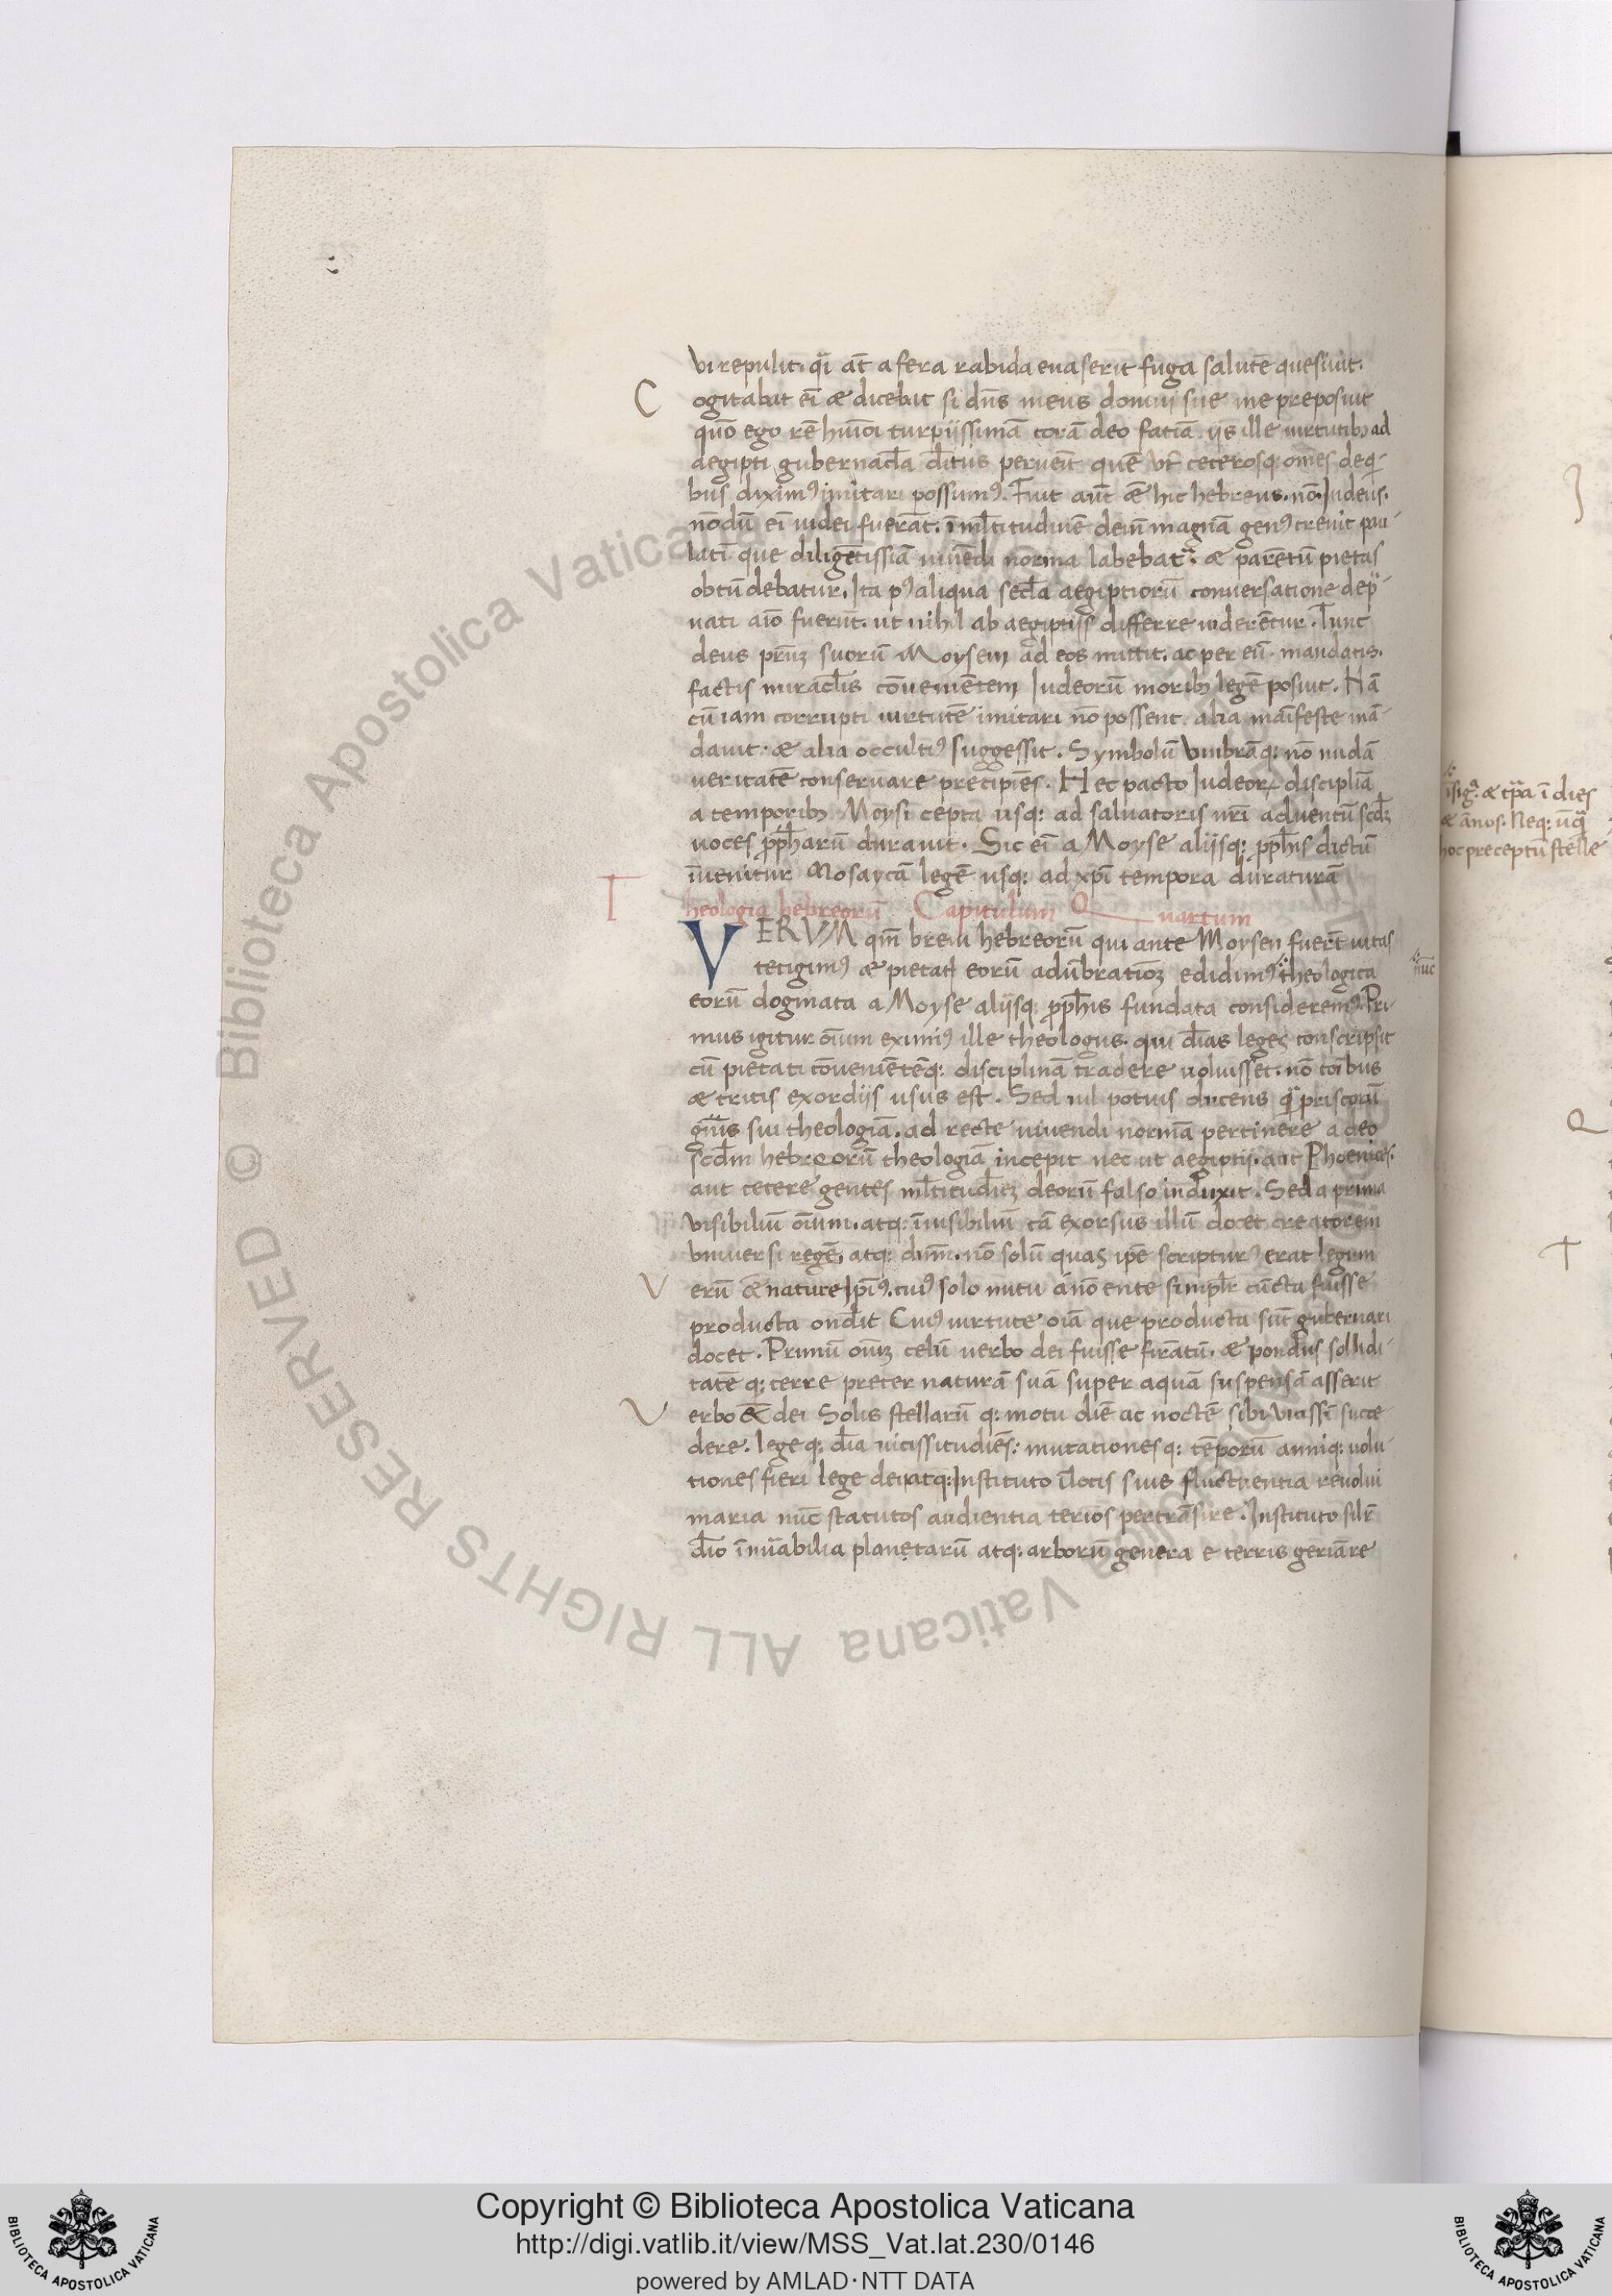 vi repulit. qͥ at̄ a fera rabida euaserit fuga salutē quesiuit.
Cogitabat ei᷑ & dicebat si dn̄s meus domui sue me preposuit
quō ego rē hui᷑oi turpijssimā corā deo faciā. ijs ille uirtutibꝫ ad
aegipti gubernacl̄a d̄itus peruēit quē ut̄ ceterosqꝫ om̄es de qͥ-
bus diximꝰ imitari possumꝰ. Fuit aūt & hic hebreus. nō Iudeus.
nōdū ei᷑ iudei fuerāt. ī ml̄titudinē dein magnā genꝰ creuit pau-
latī que diligētissīa uiuēdi norma labebatᷣ. & parētum pietas
obtūdebatur. Ita pꝰ aliqua secl̄a aegiptiorū conuersatione dep̄-
uati aīo fuerūt. ut nihil ab aegiptijs differre uiderētur. Tunc
deus pr̄uꝫ suorū Moysem ad eos mittit. ac per eū mandatis.
factis miracl̄is cōuenientem Iudeorū moribꝫ legē posuit. Nā
cū iam corrupti uirtutē imitari nō possent. alia maīfeste mā-
dauit. & alia occultiꝰ suggessit. Symbolū vmbrāqꝫ nō nudā
ueritatē conseruare precipiēs. Hec pacto Iudeoꝝ disciplīa
a temporibꝫ Moysi cepta usqꝫ ad saluatoris nr̄i aduentū scd̄ꝫ
uoces pp̄harū durauit. Sic ei᷑ a Moyse alijsqꝫ pp̄his dictū
īuenitur Mosaycā legē usqꝫ ad xp̄i tempora duraturā
Theologia hebreorū Capitulum Quartum
VERVM qm̄ breui hebreorū qui ante Moysen fuerūt uitas
tetigimꝰ & pietatis eorū adūbratiōꝫ edidimꝰ theologica
nūc
eorū dogmata a Moyse alijsqꝫ pp̄his fundata consideremꝰ. Pri-
mus igitur oīum eximiꝰ ille theologus. qui d̄ias leges conscripsit
cū pietati cōuenientēqꝫ disciplinā tradere uoluisset. nō cōibus
& tritis exordijs usus est. Sed nil potius ducens qͣ priscorū
gn̄is sui theologiā. ad recte uiuendi normā pertinere a deo
scd̄m hebreorū theologiā incepit nec ut aegiptij. aut Phoenices.
aut cetere gentes ml̄titudīeꝫ deorū falso induxit. Sed a prima
visibiliū oīum. atqꝫ īuisibiliū cā exorsus illū docet creatorem
vniuersi regē. atqꝫ dn̄m. nō solū quas ip̄e scripturꝰ erat legum
Verū & nature ip̄iꝰ. cuiꝰ solo nutu a nō ente simpl̄r cūcta fuisse
producta ondit Cuiꝰ uirtute oīa que producta sūt gubernari
docet. Primū oīuꝫ celū uerbo dei fuisse firātū. & pondus sollidi-
tatē qꝫ terre preter naturā suā super aquā suspensā asserit
Verbo & dei Solis stellarū qꝫ motu diē ac noctē sibi vicissī succe-
dere. lege qꝫ d̄ia uicissitudiēs: mutationesqꝫ tēporū anniqꝫ uolu-
tiones fieri lege dei atqꝫ Instituto īlocis suis fluctuentia reuolui
maria nūc statutos audientia terīos pertrāsire. Instituto sil̄r
d̄io īnūabilia planetarū atqꝫ arborū genera e terris geriāre
īsigᷓ. & tp̄a ī dies
& ānos. Neqꝫ ūqͣ
hoc preceptū stelle
Copyright © Biblioteca Apostolica Vaticana
http://digi.vatlib.it/view/MSS_Vat.lat.230/0146
powered by AMLAD·NTT DATA
BIBLIOTECA APOSTOLICA VATICANA
BIBLIOTECA APOSTOLICA VATICANA
© Biblioteca Apostolica Vaticana
ALL RIGHTS RESERVED